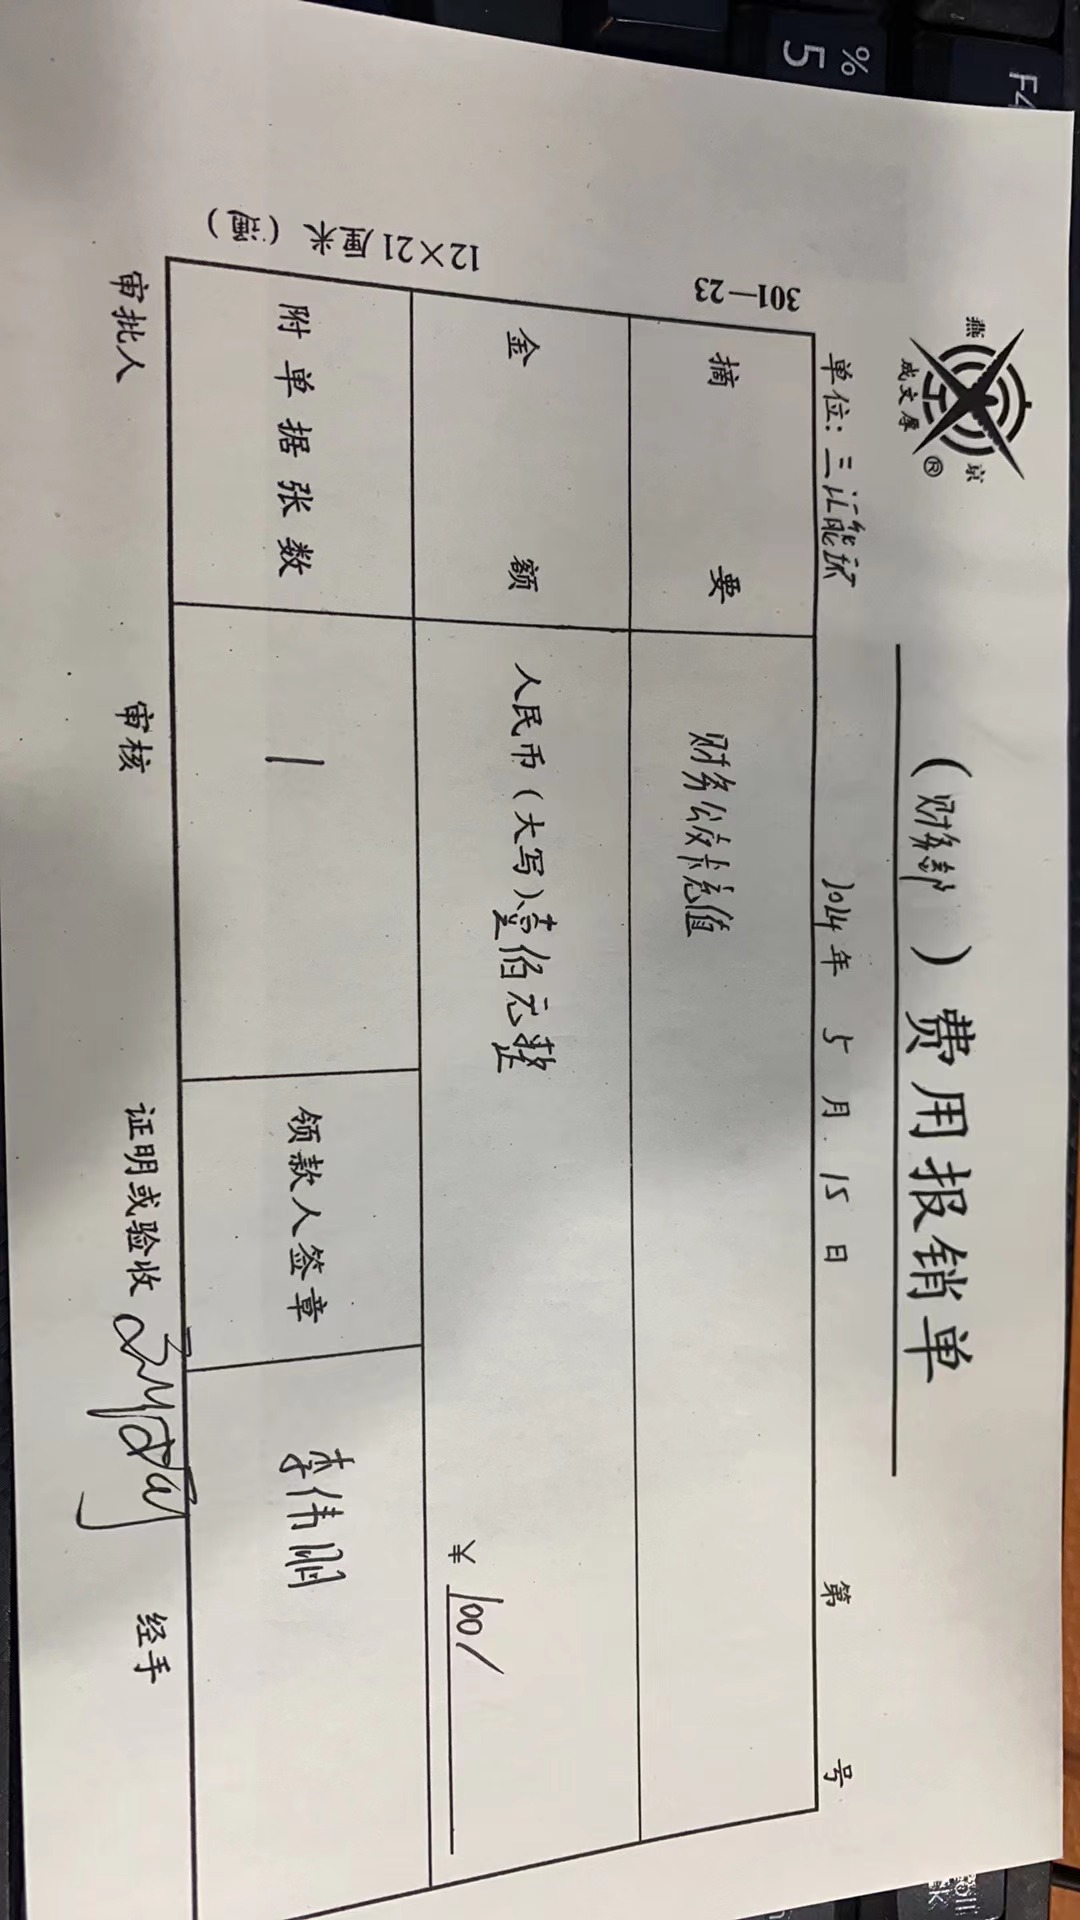 燕京
成文厚
®
（财务部）费用报销单
单位：三汇能环 2024年 5月 15日 第 号
摘要 财务公交卡充值
金额 人民币（大写）壹佰元整 ¥ 100/
附单据张数 1 领款人签章 李伟
审批人 审核 证明或验收 经手
301—23
12×21厘米（通）
% 5
F4